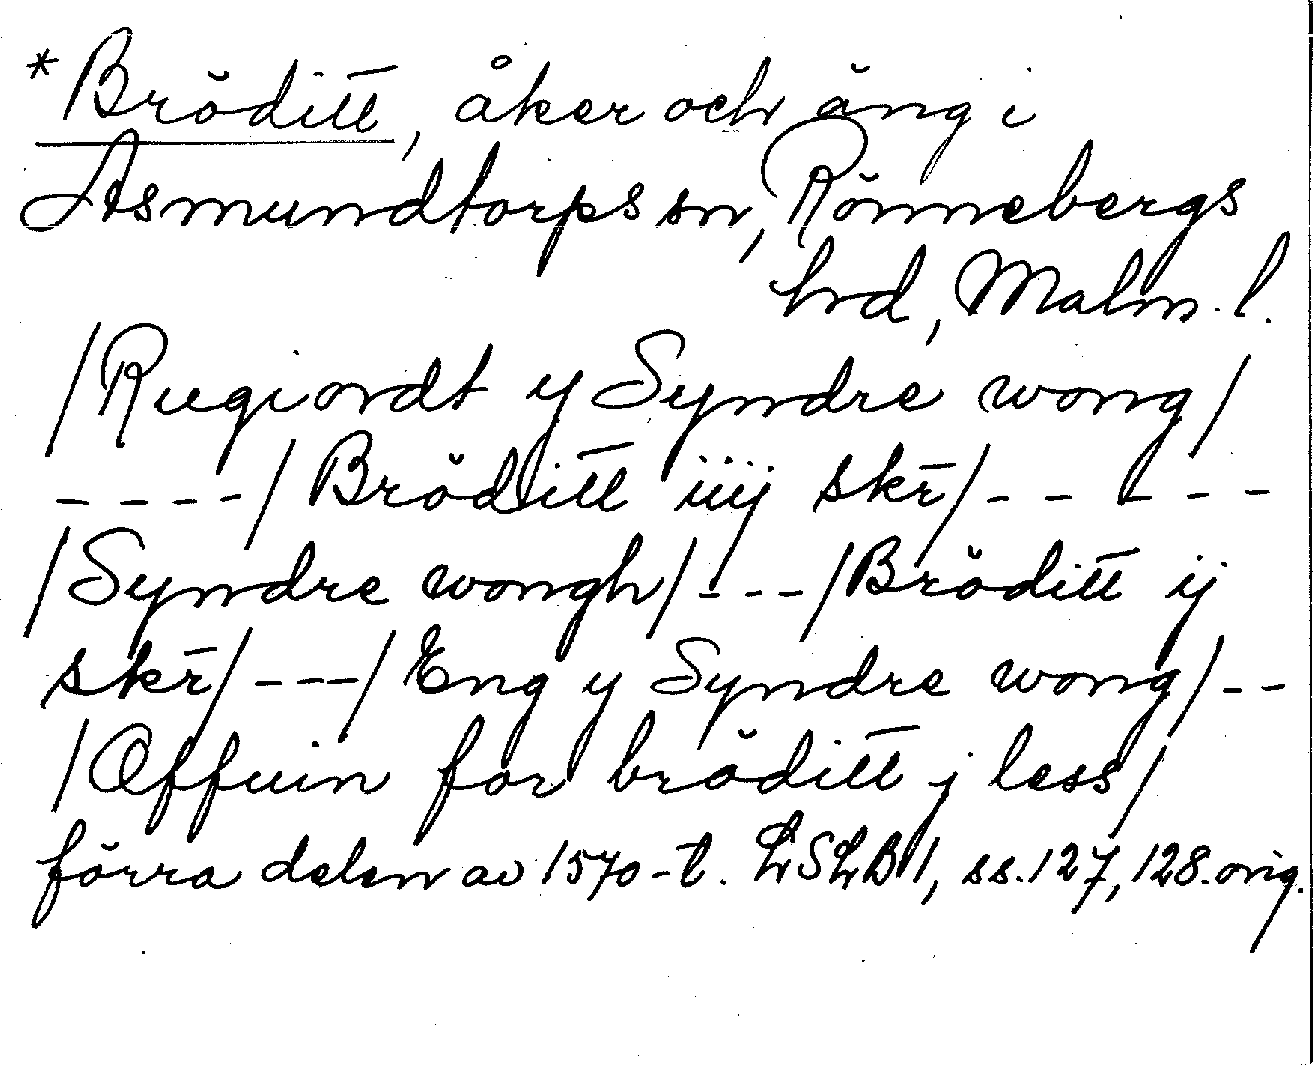 *Bröditt, åker och äng i
Asmundtorps sn, Rönnebergs
hrd, Malm. l.
/Rugiordt y Syndre wong/
----/Bröditt iiij skr̄/-----
/Syndre wongh/---/Bröditt ij
skr̄/---/Eng y Syndre wong/--
/Offuin for bröditt j less/
förra delen av 1570-t. LSLB 1, ss. 127, 128. orig.